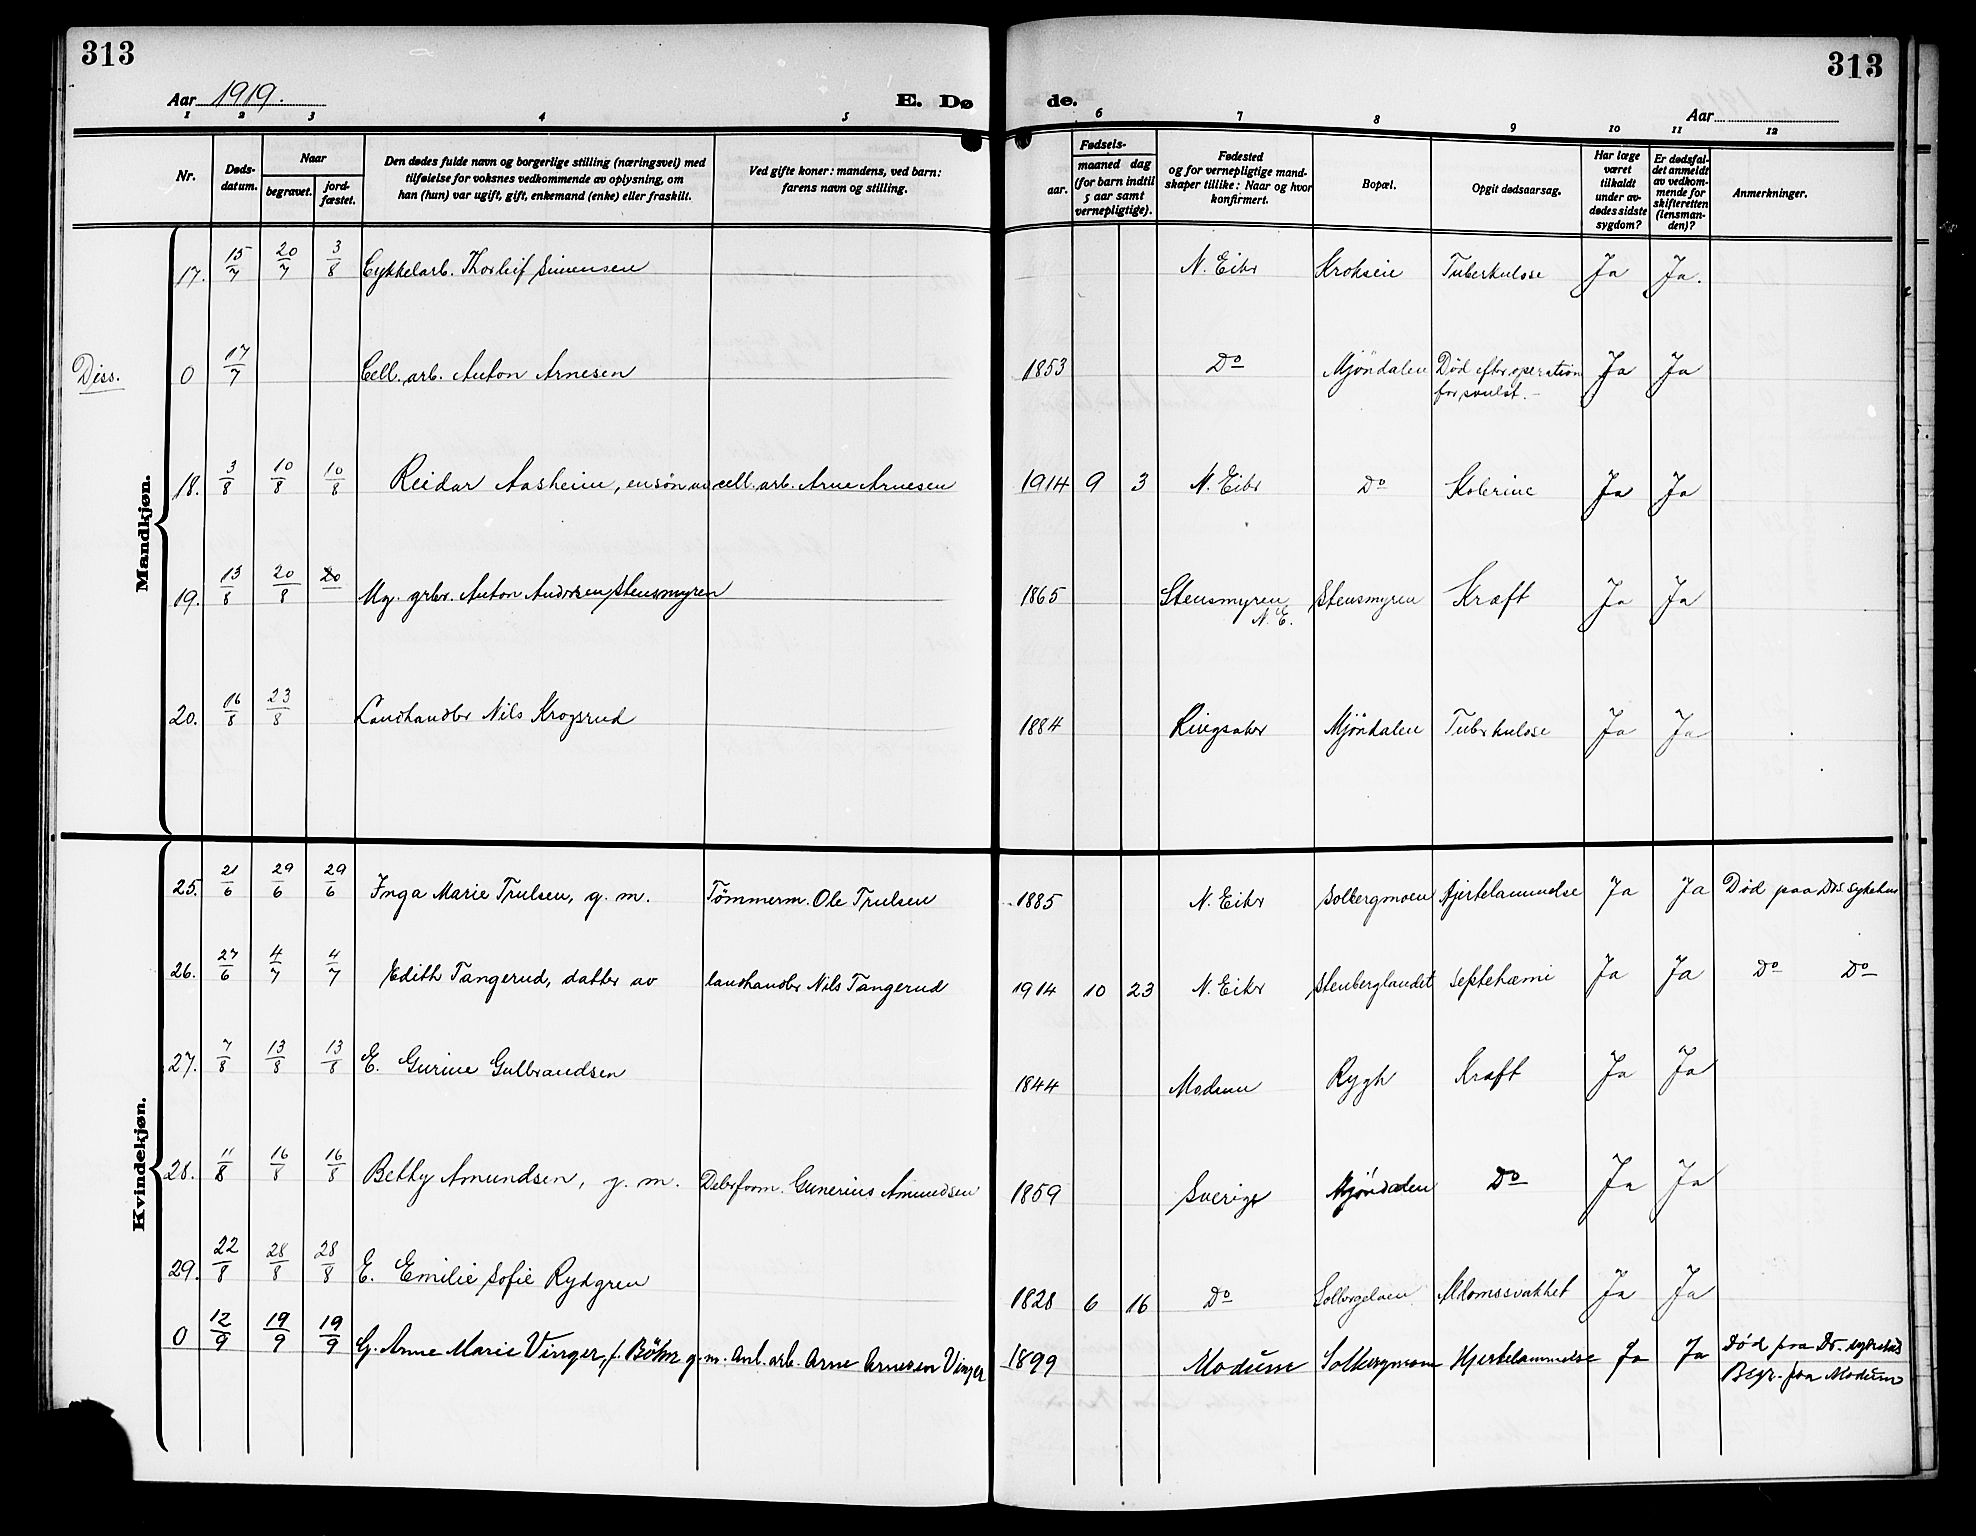 313
313
Aar 1919.
E. Dø
de.
Aar
1 2 3 4 5 6 7 8 9 10 11 12
Nr.
Døds-
datum.
Naar
begravet.
jord-
fæstet.
Den dødes fulde navn og borgerlige stilling (næringsvei) med
tilføielse for voksnes vedkommende av oplysning, om
han (hun) var ugift, gift, enkemand (enke) eller fraskilt.
Ved gifte koner: mandens, ved barn:
farens navn og stilling.
aar.
Fødsels-
maaned dag
(for barn indtil
5 aar samt
vernepligtige).
Fødested
og for vernepligtige mand-
skaper tillike: Naar og hvor
konfirmert.
Bopæl.
Opgit dødsaarsag.
Har læge
været
tilkaldt
under av-
dødes sidste
sygdom?
Er dødsfal-
det anmeldt
av vedkom-
mende for
skifteretten
(lensman-
den)?
Anmerkninger.
Mandkjøn.
17. 15/7 20/7 3/8 Cykkelarb. Thorleif Simensen N. Eiker Tuberkulose Ja Ja.
Diss. 0 17/7 Cell. arb. Anton Arnesen 1853 Do Mjöndalen Död efter operation Ja Ja
for svulst.
18. 3/8 10/8 10/8 Reidar Aasheim, en sön av cell. arb. Arne Arnesen 1914 9 3 N. Eiker Do Kolerine Ja Ja
19. 13/8 20/8 20 Mg. grbr. Anton Andersen Stensmyren 1865 Stensmyren Stensmyren Kræft Ja Ja
N. E.
20. 16/8 23/8 Landhandler Nils Krogsrud 1884 Ringsaker Mjöndalen Tuberkulose Ja Ja
Kvindekjøn.
25. 21/6 29/6 29/6 Inga Marie Trulsen, g. m. Tömmerm. Ole Trulsen 1885 N. Eiker Solbergmoen Hjertelammelse Ja Ja Död paa Drs. sykehus
26. 27/6 4/7 4/7 Edith Tangerud, datter av landhandler Nils Tangerud 1914 10 23 N. Eiker Stenberglandet Septehæmi Ja Ja Do Do
27. 7/8 13/8 13/8 E. Gurine Gulbrandsen 1844 Modum Rygh Kræft Ja Ja
28. 11/8 16/8 16/8 Betty Amundsen, g. m. Gunerius Amundsen 1859 Sverige Mjöndalen Do Ja Ja
29. 22/8 28/8 28/8 E. Emilie Sofie Rydgren 1828 6 16 Do Solbergelven Aldomssvakhet Ja Ja
0 12/9 19/9 19/9 G. Anne Marie Vinger, f. Böhn g. m. Anl. arb. Arne Arnesen Vinger 1899 Modum Solbergmoen Hjertelammelse Ja Ja Död paa Dr. sykehus
Begr. paa Modum